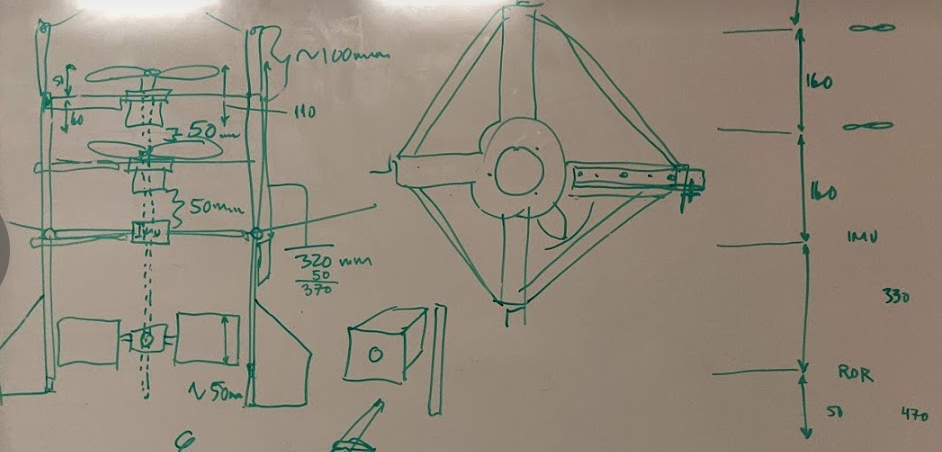 ~100mm
50
60
110
≥50mm
50mm
IMU
320 mm
50
370
~50mm
6
160
160
IMU
330
RDR
50
470